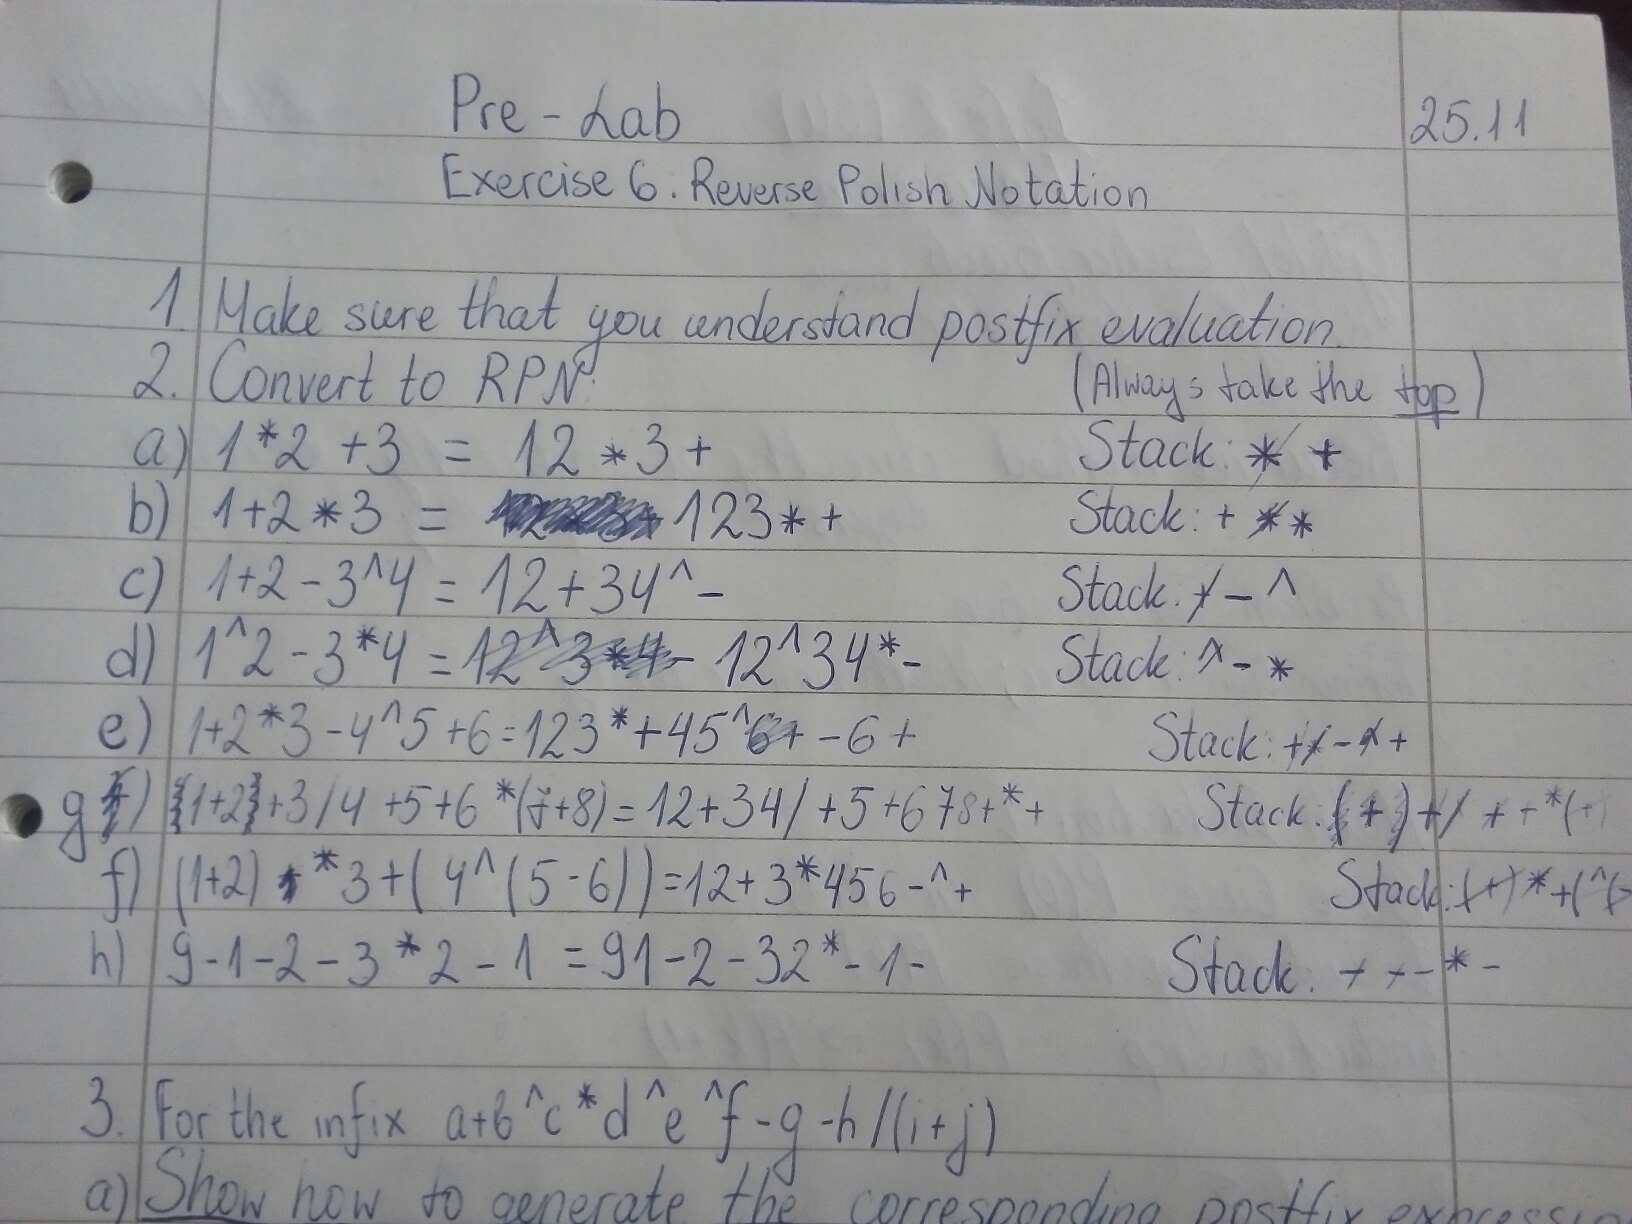 Pre-Lab 25.11
Exercise 6. Reverse Polish Notation
1. Make sure that you understand postfix evaluation.
2. Convert to RPN: (Always take the top)
a) 1*2+3 = 12*3+ Stack: * +
b) 1+2*3 = 123*+ Stack: + * *
c) 1+2-3^4 = 12+34^- Stack: + - ^
d) 1^2-3*4 = 12^34*- Stack: ^ - *
e) 1+2*3-4^5+6=123*+45^-6+ Stack: + * - ^ +
g) {1+2}+3/4+5+6*(7+8)=12+34/+5+678+*+ Stack: (+)+/ + +*(+)
f) (1+2)*3+(4^(5-6))=12+3*456-^+ Stack: (+)*+(^(-
h) 9-1-2-3*2-1 = 91-2-32*-1- Stack: - - - * -
3. For the infix a+b^c*d^e^f-g-h/(i+j)
a) Show how to generate the corresponding postfix